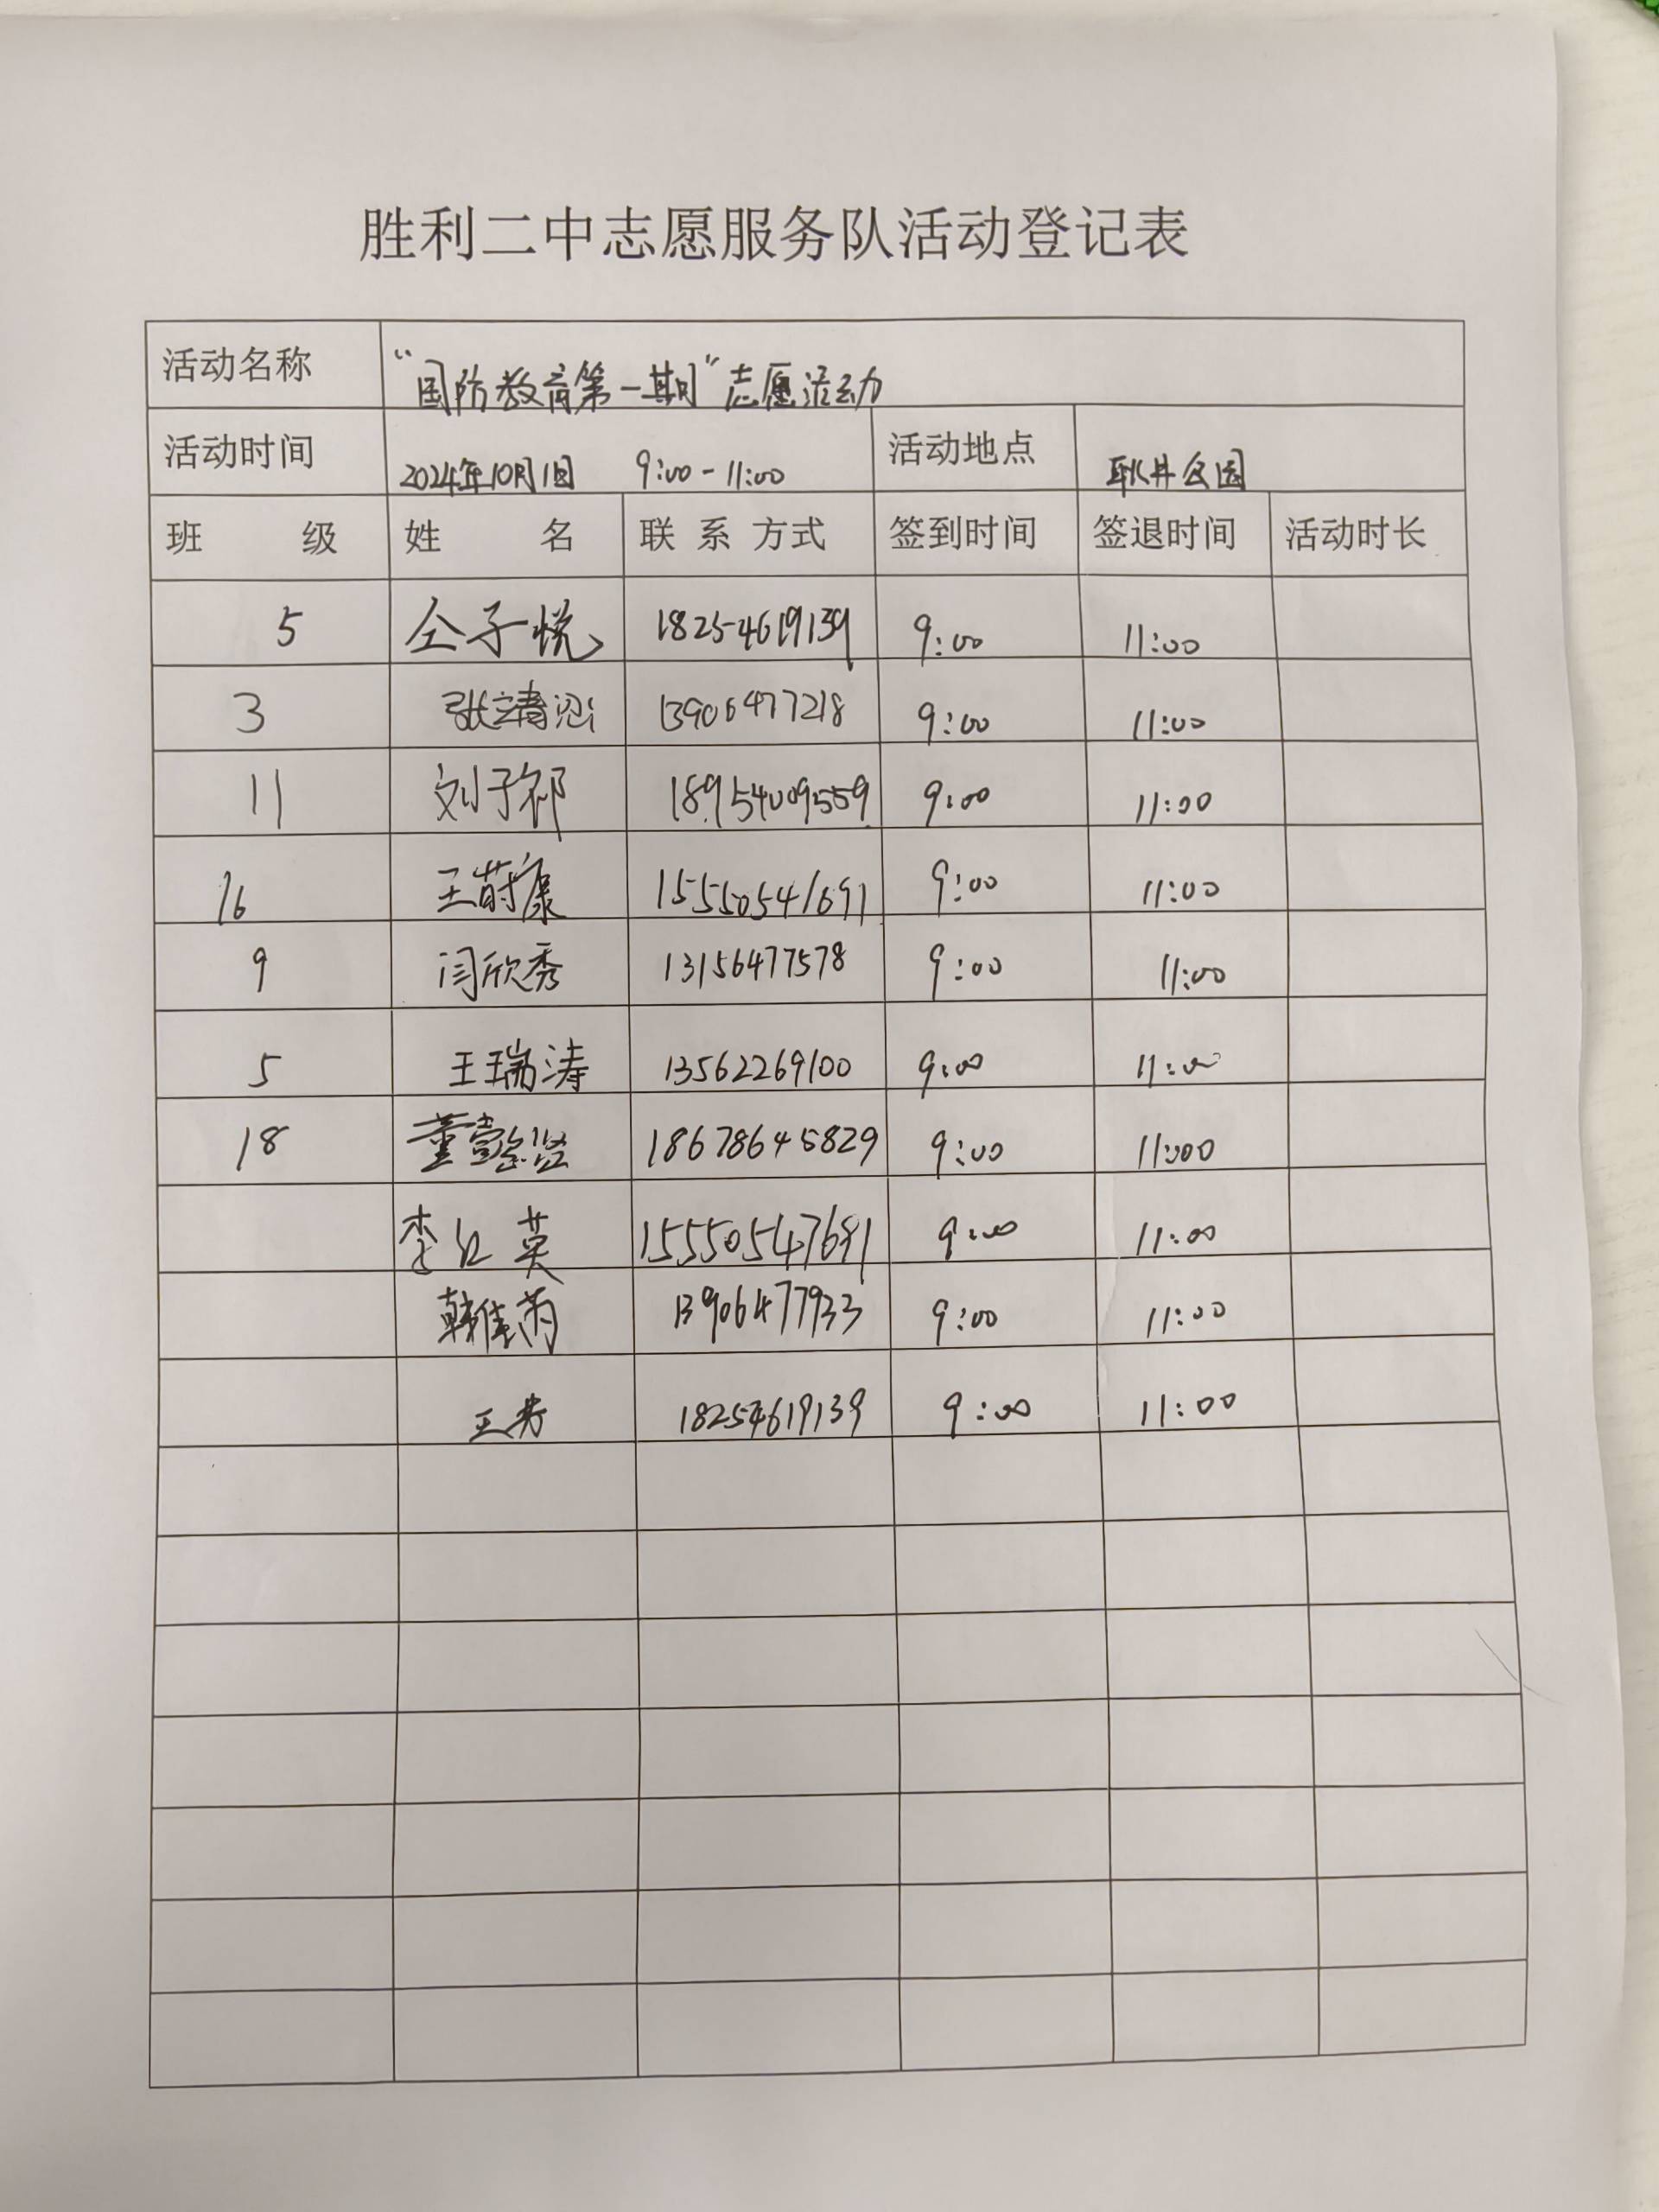 胜利二中志愿服务队活动登记表
活动名称 “国防教育第一期”志愿活动
活动时间 2024年10月1日 9:00-11:00 活动地点 耿井公园
班 级 姓 名 联 系 方式 签到时间 签退时间 活动时长
5 仝子悦 18254619139 9:00 11:00
3 张靖 13906477218 9:00 11:00
11 刘子祁 18954009559 9:00 11:00
16 王蔚康 15550541691 9:00 11:00
9 闫欣秀 13156477578 9:00 11:00
5 王瑞涛 13562269100 9:00 11:00
18 董 18678645829 9:00 11:00
李红英 15550547691 9:00 11:00
韩佳芮 13906477933 9:00 11:00
王秀 18254619139 9:00 11:00